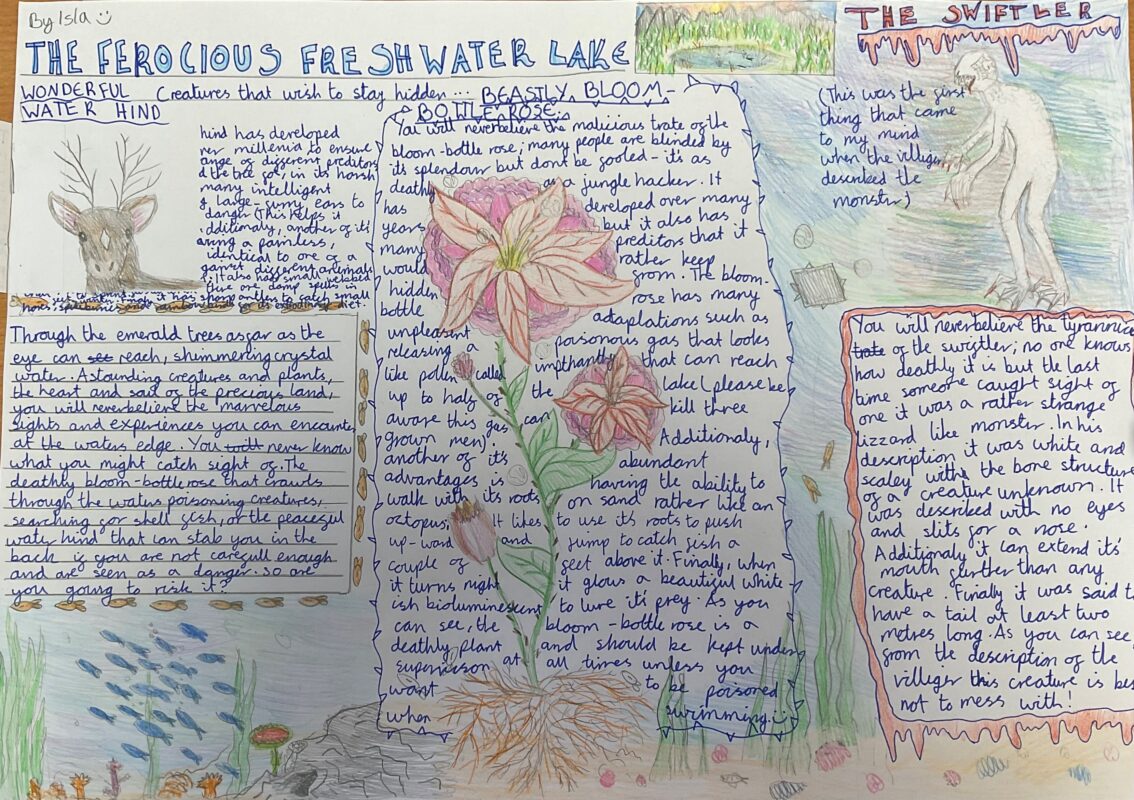 By Isla
THE FEROCIOUS FRESHWATER LAKE
WONDERFUL
WATER HIND
Creatures that wish to stay hidden...
hind has developed
ver millenia to ensure
ange of different preditors
in its horsh
many intelligent
large-furry ears to
danger (This helps it
dditionaly, another of it's
a painless,
identical to one of a
different animals
It also has small webbed
it has sharp antlers to catch small
diet.
Through the emerald trees as far as the
eye can see reach, shimmering crystal
water. Astounding creatures and plants,
the heart and soul of the precious land,
you will neverbelieve the marvelous
sights and experiences you can encounter
at the waters edge. You will never know
what you might catch sight of. The
deathly bloom-bottlerose that crawls
through the waters poisoning creatures,
searching for shell fish, or the peaceful
water hind that can stab you in the
back if you are not carefull enough
and are seen as a danger. So are
you going to risk it?
BEASTILY BLOOM-
BOTTLEROSE:
You will neverbelieve the malicious trate of the
bloom-bottle rose; many people are blinded by
its splendour but dont be fooled - it's as
deathly as a jungle hacker. It
has developed over many
years but it also has
many preditors that it
would rather keep
hidden from. The bloom-
bottle rose has many
unpleasent adaptations such as
releasing a poisonous gas that looks
like pollen called impthantly that can reach
up to half of the lake (please be
aware this gas can kill three
grown men). Additionaly,
another of it's abundant
advantages is having the ability to
walk with its roots on sand rather like an
octopus; It likes to use it's roots to push
up-ward and jump to catch fish a
couple of feet above it. Finally, when
it turns night it glows a beautiful white
ish bioluminescent to lure it's prey. As you
can see, the bloom-bottlerose is a
deathly plant and should be kept under
supervison at all times unless you
want to be poisoned
when swimming :)
THE SWIFTLER
(This was the first
thing that came
to my mind
when the villager
described the
monster)
You will neverbelieve the tyrannice
trate of the swiftler; no one knows
how deathly it is but the last
time someone caught sight of
one it was a rather strange
lizzard like monster. In his
description it was white and
scaley with the bone structure
of a creature unknown. It
was described with no eyes
and slits for a nose.
Additionaly it can extend it's
mouth further than any
creature. Finally it was said t
have a tail at least two
metres long. As you can see
from the description of the
villiger this creature is bes
not to mess with!